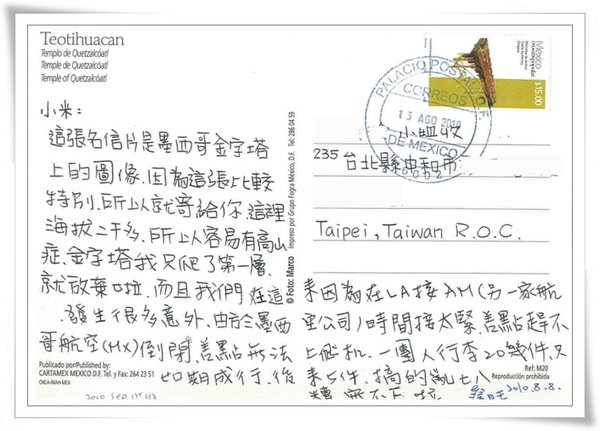 Teotihuacan
Templo de Quetzalcóatl
Temple de Quetzalcóatl
Temple of Quetzalcóatl
小米：
這張名信片是墨西哥金字塔
上的圖像，因為這張比較
特別，所以就寄給你，這裡
海拔二千多，所以容易有高山
症，金字塔我只爬了第一層，
就放棄啦，而且我們在這
發生很多意外，由於墨西
哥航空(MX)倒閉，差點無法
如期成行，後
來因為在LA接AM(另一家航
里公司)時間接太緊，差點趕不
上飛機，一團人行李20幾件，只
來5件，搞的亂七八
糟
2010.8.8.
2010 SEP.
Publicado por/Published by:
CARTAMEX MEXICO D.F. Tel. y Fax: 264 23 51
OSCA-INAH-MEX
© Foto: Marco
Impreso por Grupo Fogra México, D.F. Tel: 286 04 59
PALACIO POSTAL D.F.
CORREOS
13 AGO 2010
DE MEXICO
México
$15.00
收
235 台北縣中和市
Taipei, Taiwan R.O.C.
Ref: M20
Reproducción prohibida